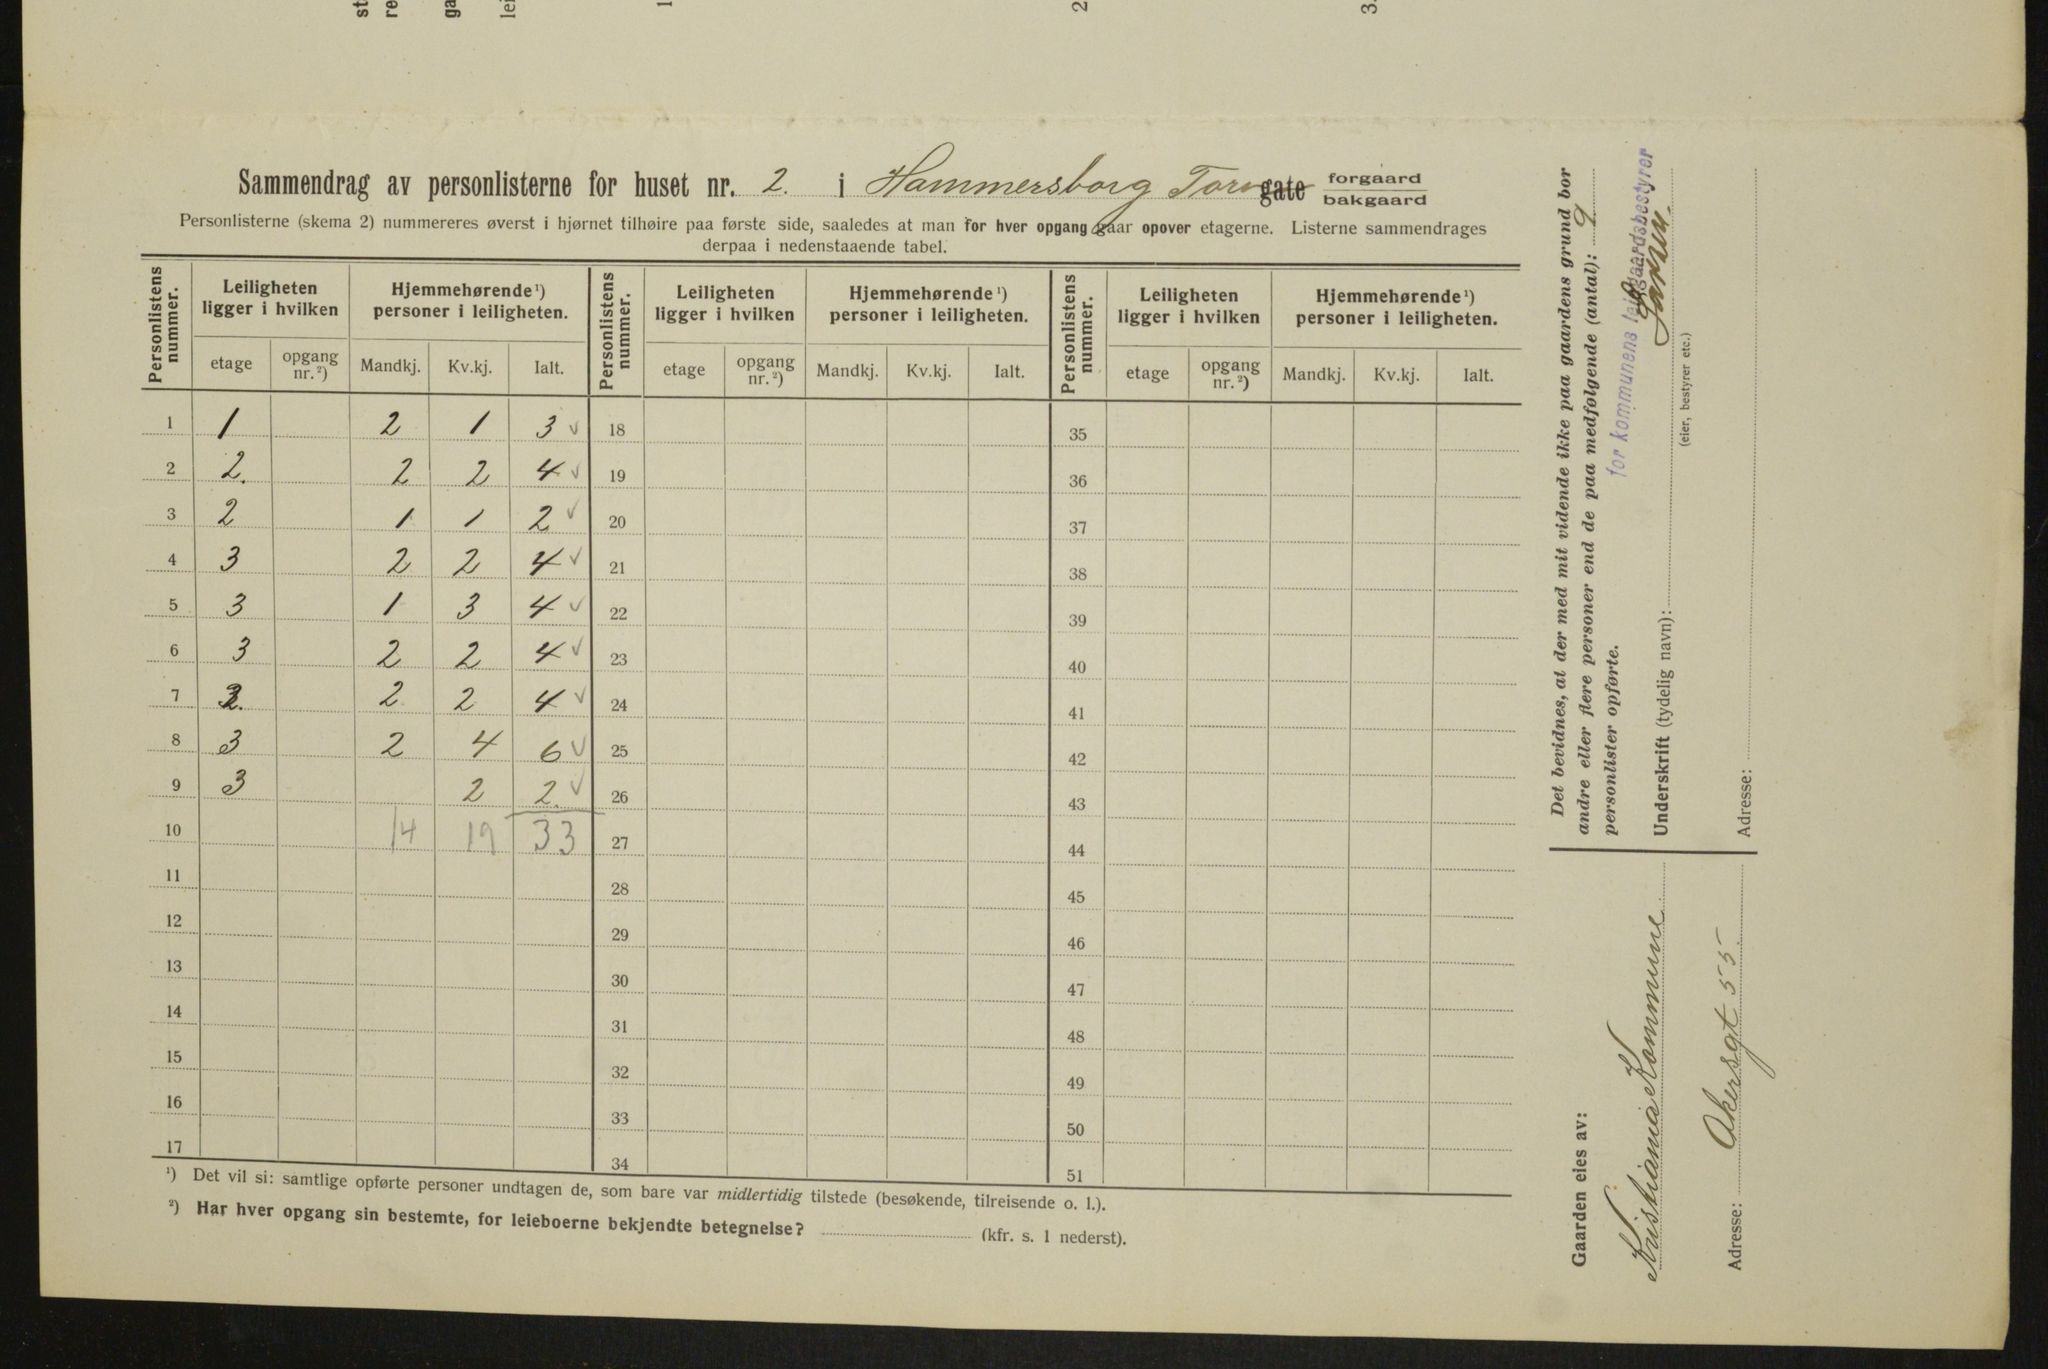 st
re
ga
lei
1
2
3.
Sammendrag av personlisterne for huset nr. 2. i Hammersborg Torv gate forgaard bakgaard
Personlisterne (skema 2) nummereres øverst i hjørnet tilhøire paa første side, saaledes at man for hver opgang gaar opover etagerne. Listerne sammendrages
derpaa i nedenstaaende tabel.
Personlistens nummer. Leiligheten ligger i hvilken Hjemmehørende ¹) personer i leiligheten. Personlistens nummer. Leiligheten ligger i hvilken Hjemmehørende ¹) personer i leiligheten. Personlistens nummer. Leiligheten ligger i hvilken Hjemmehørende ¹) personer i leiligheten.
etage opgang nr. ²) Mandkj. Kv.kj. Ialt. etage opgang nr. ²) Mandkj. Kv.kj. Ialt. etage opgang nr. ²) Mandkj. Kv.kj. Ialt.
1 1 2 1 3 ✓ 18 35
2 2. 2 2 4 ✓ 19 36
3 2 1 1 2 ✓ 20 37
4 3 2 2 4 ✓ 21 38
5 3 1 3 4 ✓ 22 39
6 3 2 2 4 ✓ 23 40
7 2 2 4 ✓ 24 41
8 3 2 4 6 ✓ 25 42
9 3 2 2. ✓ 26 43
10 14 19 33 27 44
11 28 45
12 29 46
13 30 47
14 31 48
15 32 49
16 33 50
17 34 51
¹) Det vil si: samtlige opførte personer undtagen de, som bare var midlertidig tilstede (besøkende, tilreisende o. l.).
²) Har hver opgang sin bestemte, for leieboerne bekjendte betegnelse? (kfr. s. 1 nederst).
Det bevidnes, at der med mit vidende ikke paa gaardens grund bor
andre eller flere personer end de paa medfølgende (antal): 9
personlister opførte.
for kommunens leiegaardsbestyrer
Underskrift (tydelig navn):
(eier, bestyrer etc.)
Adresse:
Gaarden eies av:
Kristiania Kommune
Adresse: Akersgt 55.